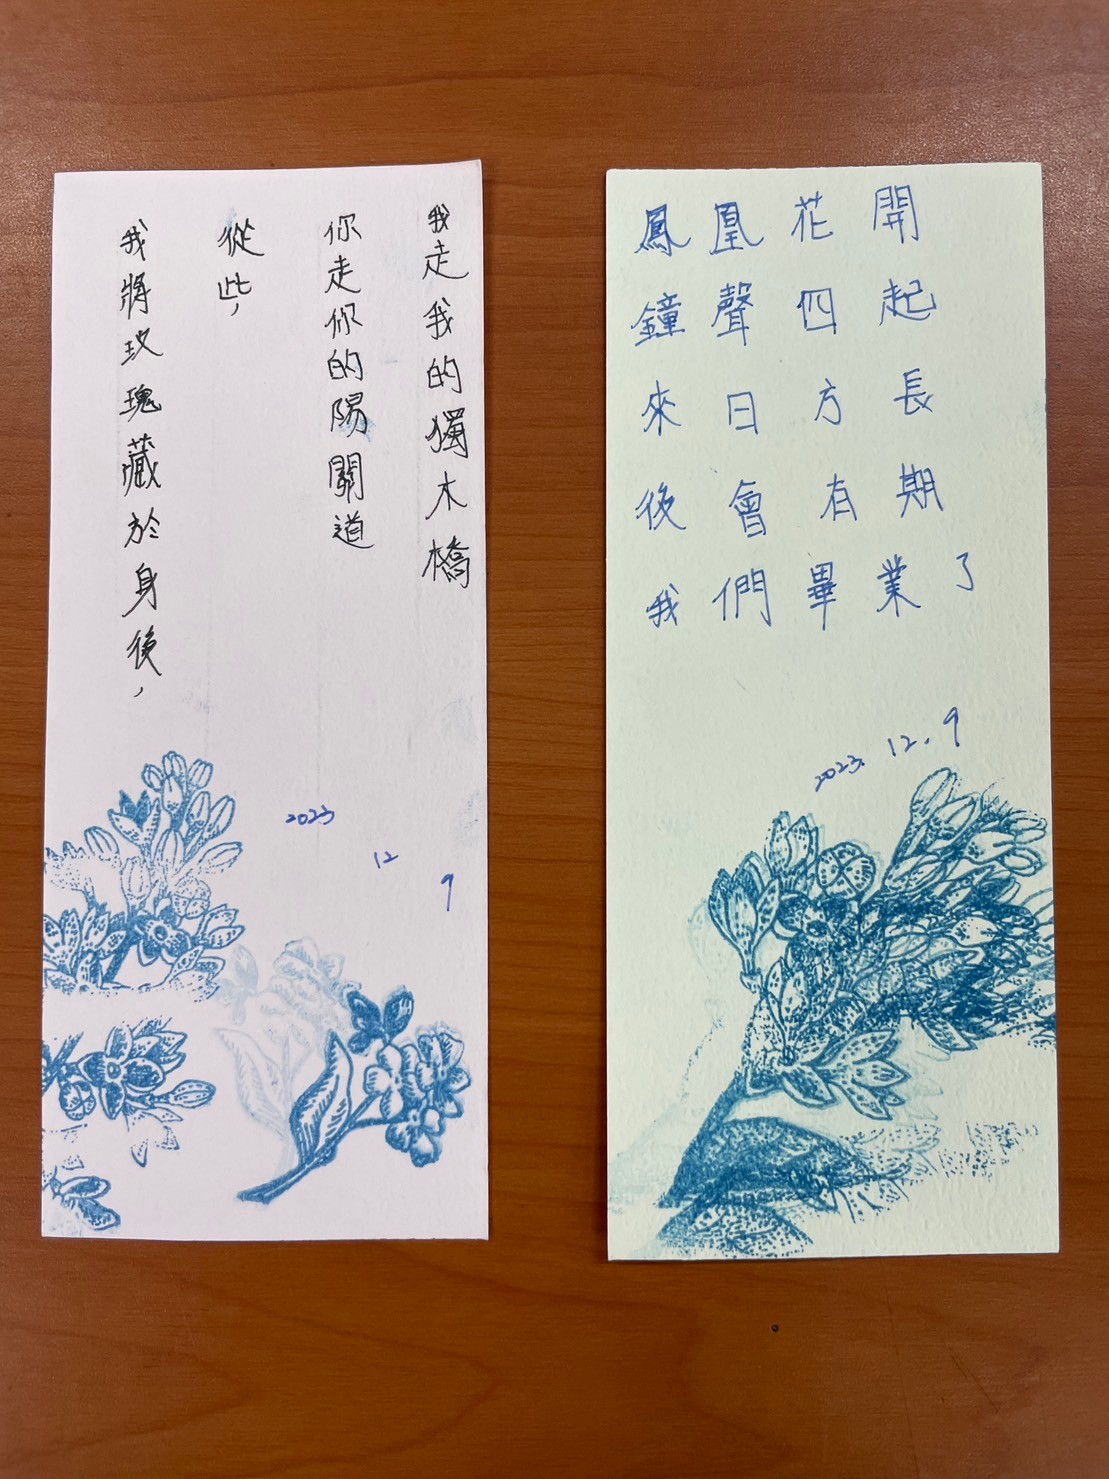 我走我的獨木橋
你走你的陽關道
從此,
我將玫瑰藏於身後,
2023
12
9
鳳凰花開
鐘聲四起
來日方長
後會有期
我們畢業了
2023. 12. 9